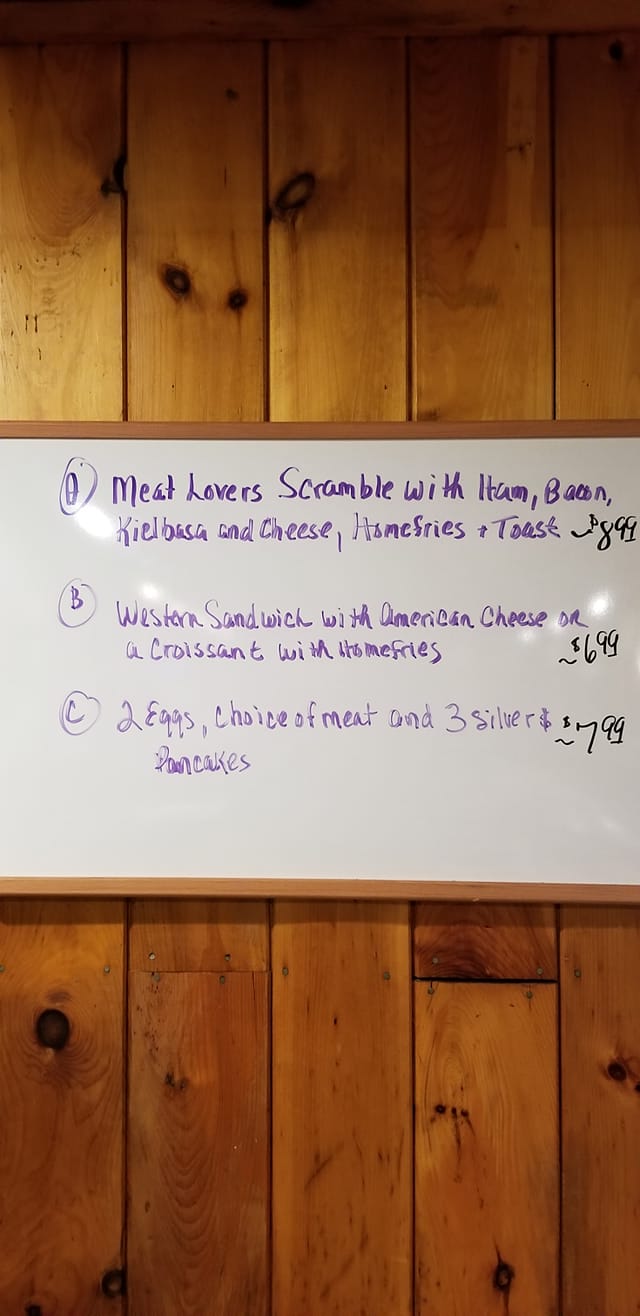 A Meat Lovers Scramble with Ham, Bacon,
Kielbasa and Cheese, Homefries + Toast ~$8.99
B Western Sandwich with American Cheese on
a Croissant with Homefries ~$6.99
C 2 Eggs, Choice of meat and 3 Silver $ ~$7.99
Pancakes